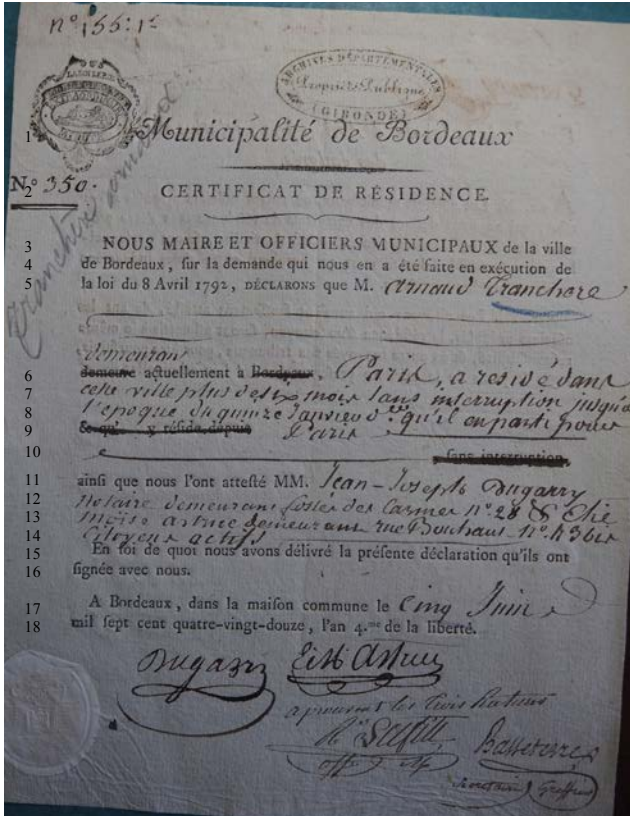 n° 155: 1
ARCHIVES DÉPARTEMENTALES
Propriété Publique
(GIRONDE)
1 Municipalité de Bordeaux
2 N.° 350.
CERTIFICAT DE RÉSIDENCE.
3 NOUS MAIRE ET OFFICIERS MUNICIPAUX de la ville
4 de Bordeaux, sur la demande qui nous en a été faite en exécution de
5 la loi du 8 Avril 1792, DÉCLARONS que M. Arnaud Tranchere
demeurant
6 demeure actuellement à Bordeaux, Paris, a residé dans
7 cette ville plus de six mois sans interruption jusqu'a
8 l'epoque du quinze Janvier d.er qu'il en parti pour
9 & qu'il y réside depuis Paris
10 sans interruption,
11 ainsi que nous l'ont attesté MM. Jean-Joseph Dugarry
12 Notaire demeurant fossés des Carmes n.° 28 & Elie
13 Moïse Astruc demeurant rue Bouhaut n.° 36
14 Citoyens actifs
15 En foi de quoi nous avons délivré la présente déclaration qu'ils ont
16 signée avec nous.
17 A Bordeaux, dans la maison commune le Cinq Juin
18 mil sept cent quatre-vingt-douze, l'an 4.me de la liberté.
Dugarry Astruc
aprouvant les trois Ratures
Basseterre
Secretaire Greffier